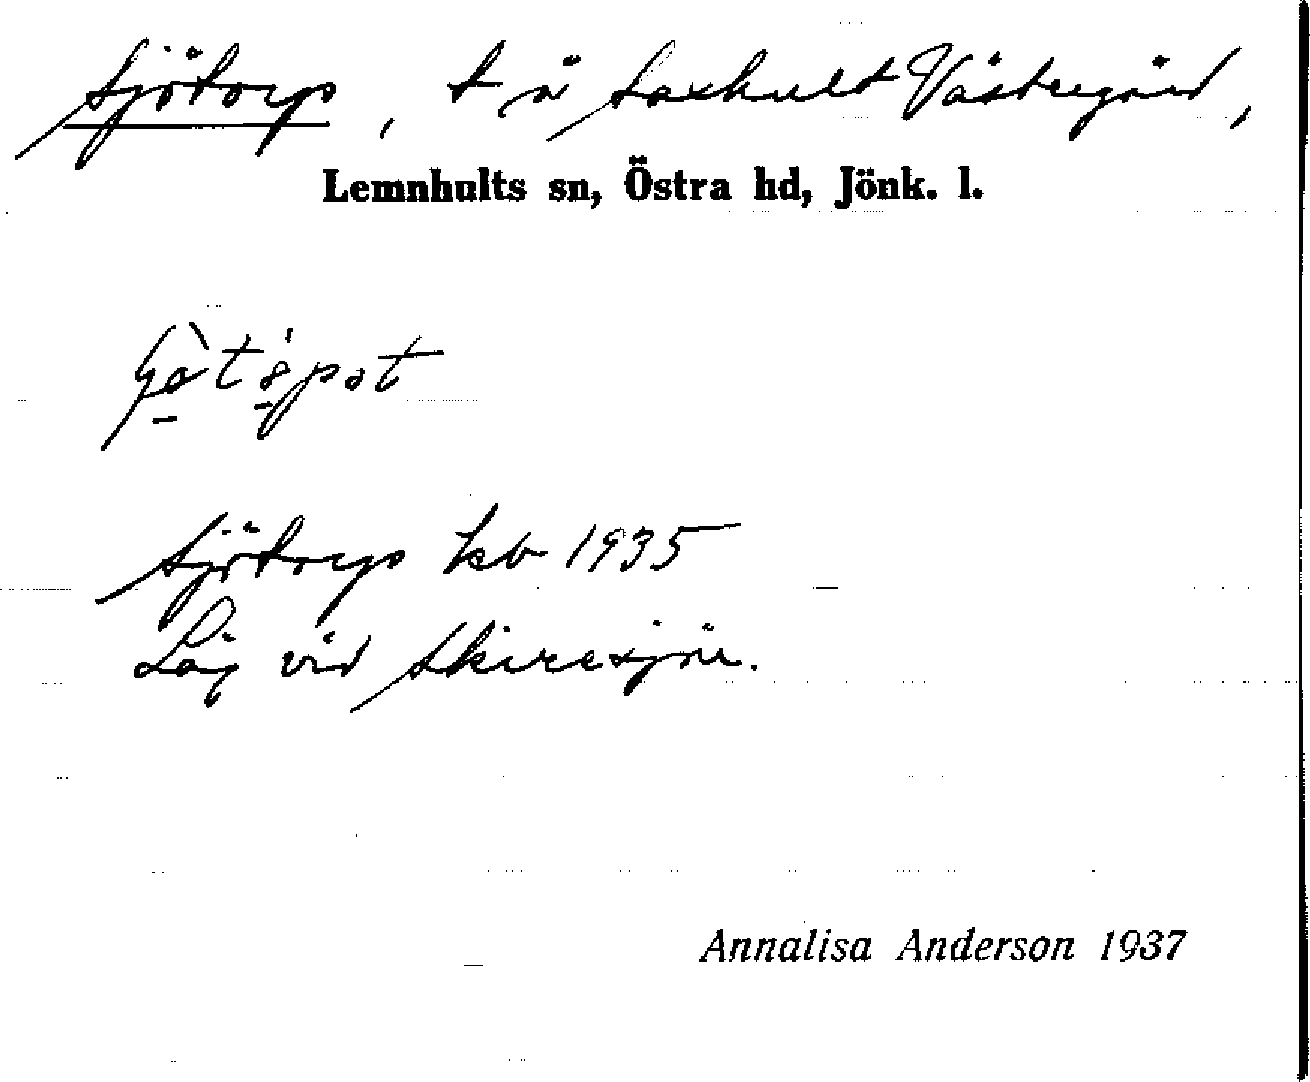 Sjötorp, t u Saxhult Västregård,
Lemnhults sn, Östra hd, Jönk. l.
Sjötorps kb 1935
Låg vid Skiresjön.
Annalisa Anderson 1937